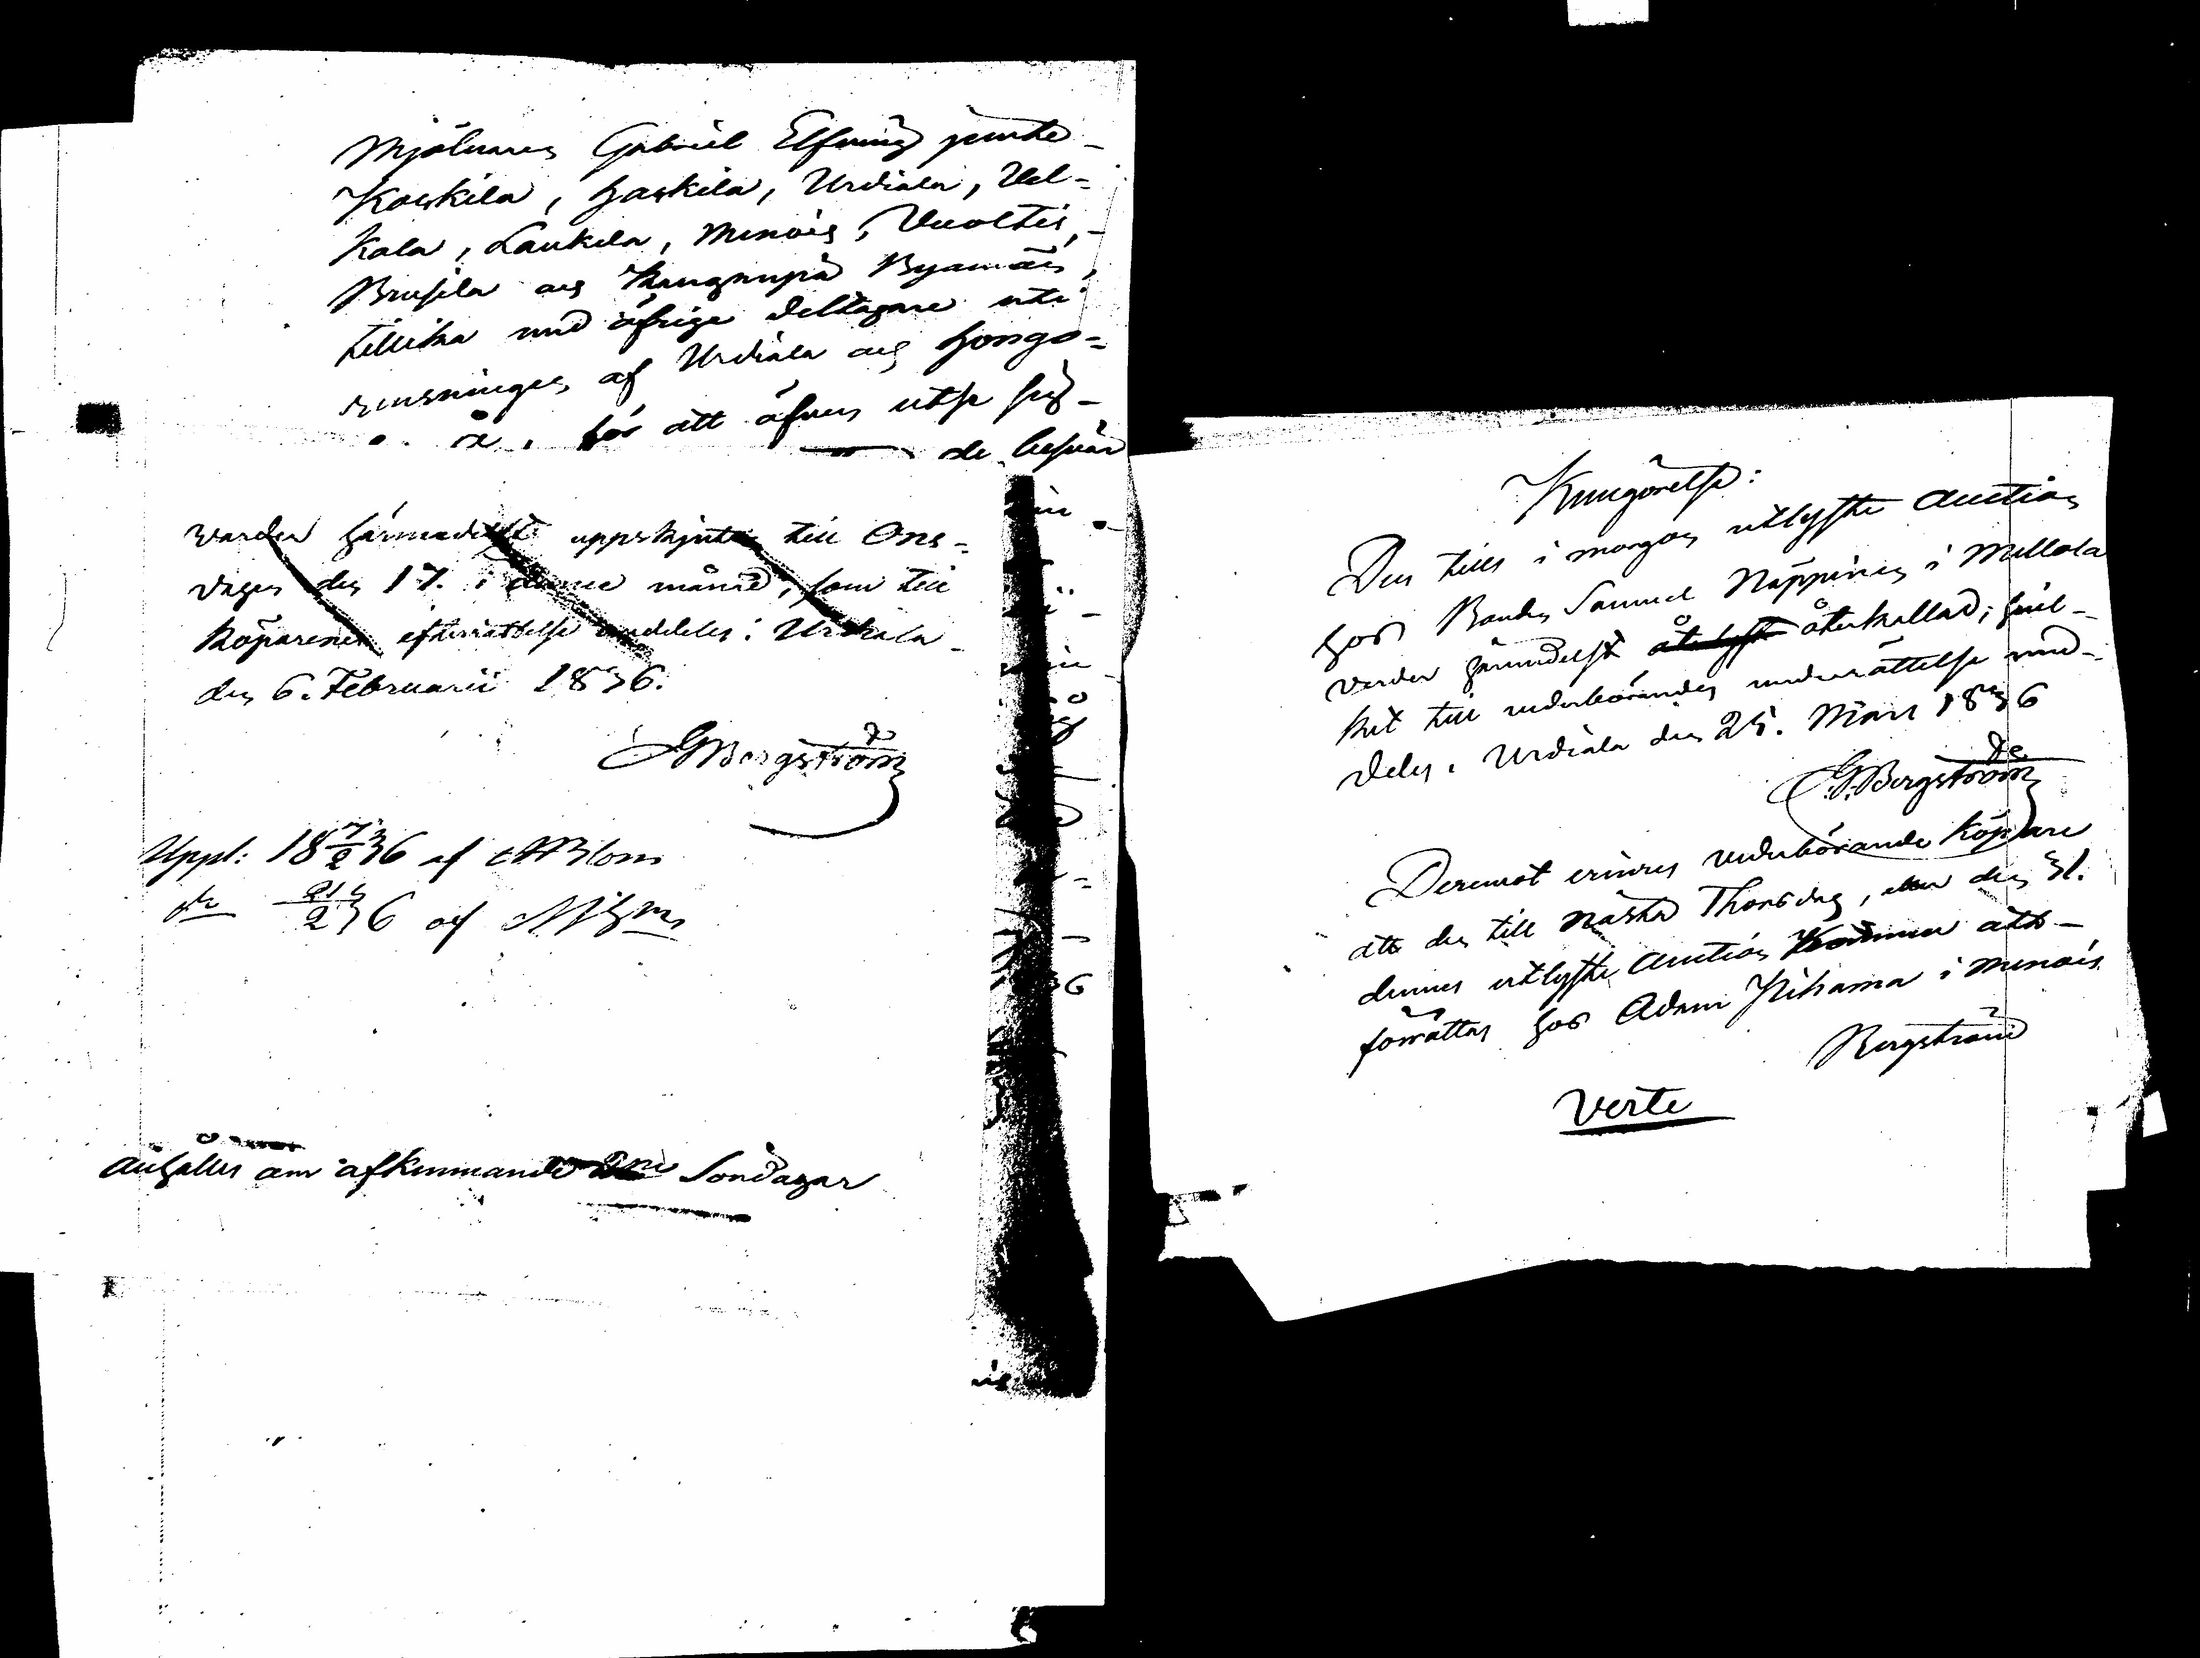 Mjölnaren Gabriel Elfving jemte
Koskila, Haskila, Urdiala, Vel-
kala, Laukela, Menois, Vuoltis,
Brusila och Kangenpää Byamän,
tillika med öfrige deltagare uti
rensningen af Urdiala och Hongo-
för att äfven utse sig
de besvär
warder härmedelst uppskjuten till Ons-
dagen den 17. i denne månad, som till
köparenes efterrättelse meddeles. Urdiala
den 6. Februarii 1836.
G Bergström
Uppl: 18 7/2 36 af
do 21/2 36 af
anhålles om afkunnande Söndagar
Kungörelse:
Den till i morgon utlyste Auction
hos Bonden Samuel Näppinen i Mellola
varder härmedelst återkallad; hvil-
ket till vederbörandes underrättelse med-
deles. Urdiala den 25. Mars 1836
G. Bergström
Deremot erinres vederbörande Köpare
att den till nästa Thorsdag, den 31.
dennes utlyste Auction kommer att
förrättas hos Adam Kihama i Menois
Bergström
Verte